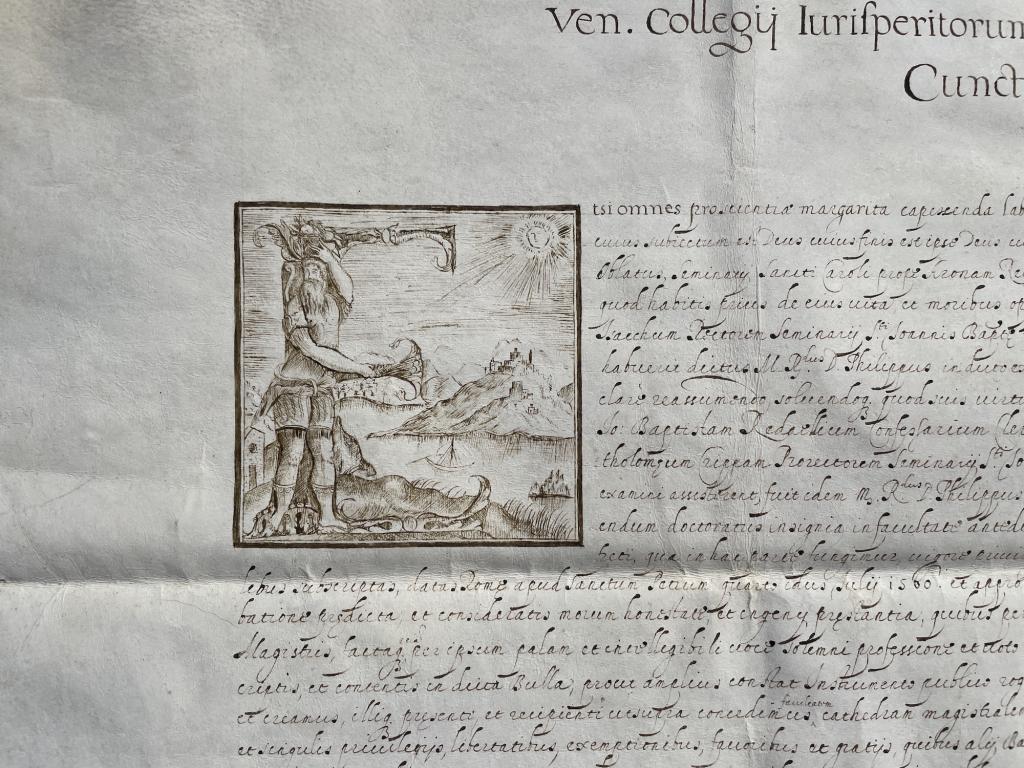 Ven. Collegij Iuriſperitorum
Cunct
E
tsi omnes pro scientiæ margarita capescenda lab
cuius subiectum est Deus cuius finis est ipse Deus cu
Oblatus, Seminarij Sancti Caroli prope Aronam Re
quod habitis prius de eius uita, et moribus
Rectorem Seminarij S.ti Ioannis Bapt
habuerit dictus M. R.dus D. Philippus in
clare reassumendo, soluendoq. quod suis uirtu
Io: Baptistam Confessarium
Prorectorem Seminarij S.ti Io
examini assisterent, fuit idem M. R.dus D. Philippus
endum doctoratus insignia in facultate anted
qua in hac parte fungimur, uigore
subscriptas, datas Romę apud Sanctum Petrum quarto idus Iulij 1560. et appro
batione prędicta, et consideratis morum honestate et ingenij pręstantia, quibus pe
Magistris, factaq. per ipsum palam et intelligibili uoce solemni professione et
criptis, et contentis in dicta Bulla, prout amplius constat Instrumento publico rog
et creamus, illiq. pręsenti, et recipienti ut supra concedimus facultatem cathedram magistralem
et singulis priuilegijs, libertatibus, exemptionibus, fauoribus et gratijs, quibus alij Ba